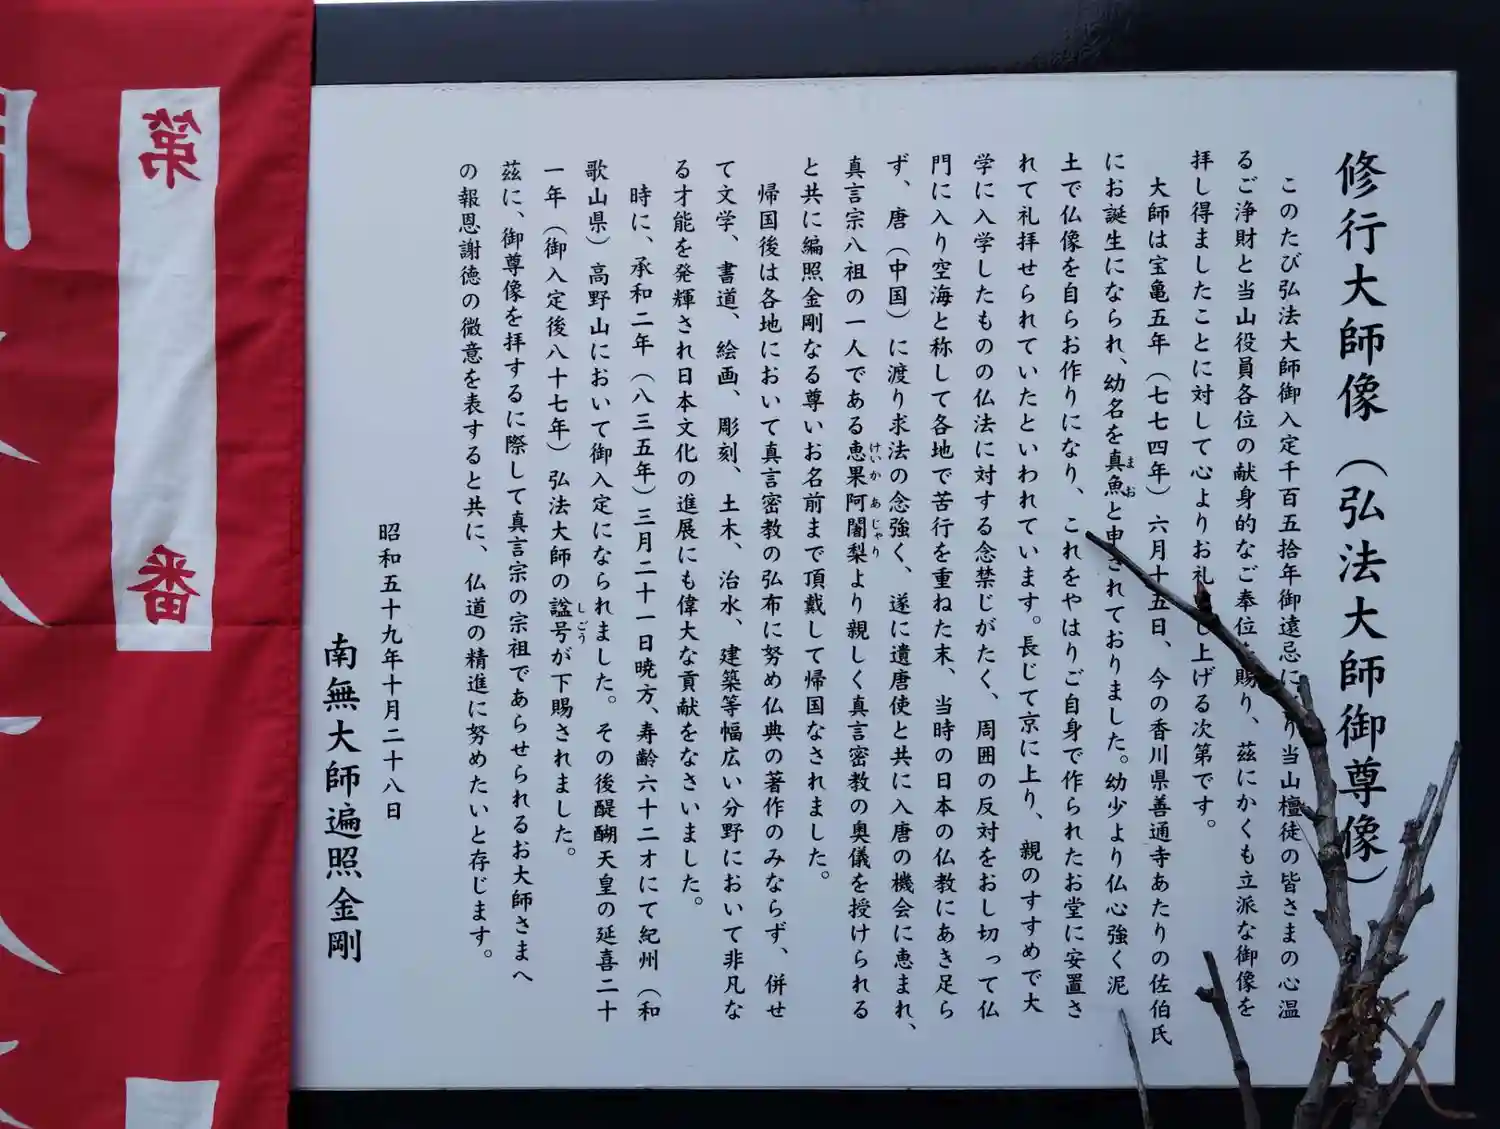 修行大師像（弘法大師御尊像）
このたび弘法大師御入定千百五拾年御遠忌に
り当山檀徒の皆さまの心温
るご浄財と当山役員各位の献身的なご奉位
賜り、茲にかくも立派な御像を
拝し得ましたことに対して心よりお礼
し上げる次第です。
大師は宝亀五年（七七四年）六月十五日、今の香川県善通寺あたりの佐伯氏
にお誕生になられ、幼名を真魚と申されておりました。幼少より仏心強く泥
まお
土で仏像を自らお作りになり、これをやはりご自身で作られたお堂に安置さ
れて礼拝せられていたといわれています。長じて京に上り、親のすすめで大
学に入学したものの仏法に対する念禁じがたく、周囲の反対をおし切って仏
門に入り空海と称して各地で苦行を重ねた末、当時の日本の仏教にあき足ら
ず、唐（中国）に渡り求法の念強く、遂に遣唐使と共に入唐の機会に恵まれ、
真言宗八祖の一人である恵果阿闍梨より親しく真言密教の奥儀を授けられる
けいか あじゃり
と共に編照金剛なる尊いお名前まで頂戴して帰国なされました。
帰国後は各地において真言密教の弘布に努め仏典の著作のみならず、併せ
て文学、書道、絵画、彫刻、土木、治水、建築等幅広い分野において非凡な
る才能を発輝され日本文化の進展にも偉大な貢献をなさいました。
時に、承和二年（八三五年）三月二十一日暁方、寿齢六十二才にて紀州（和
歌山県）高野山において御入定になられました。その後醍醐天皇の延喜二十
一年（御入定後八十七年）弘法大師の諡号が下賜されました。
しごう
茲に、御尊像を拝するに際して真言宗の宗祖であらせられるお大師さまへ
の報恩謝徳の微意を表すると共に、仏道の精進に努めたいと存じます。
昭和五十九年十月二十八日
南無大師遍照金剛
第
番